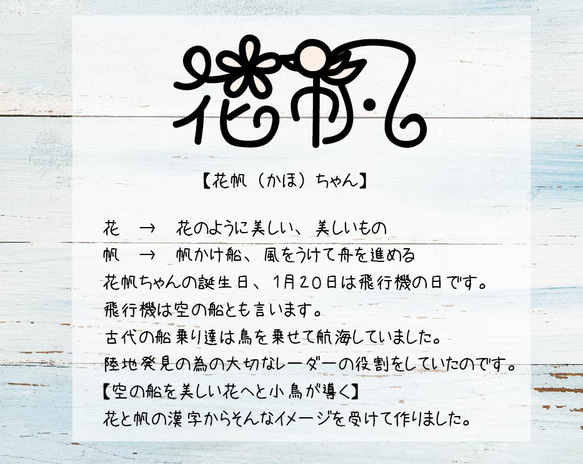 花帆
【花帆（かほ）ちゃん】
花 → 花のように美しい、美しいもの
帆 → 帆かけ船、風をうけて舟を進める
花帆ちゃんの誕生日、1月20日は飛行機の日です。
飛行機は空の船とも言います。
古代の船乗り達は鳥を乗せて航海していました。
陸地発見の為の大切なレーダーの役割をしていたのです。
【空の船を美しい花へと小鳥が導く】
花と帆の漢字からそんなイメージを受けて作りました。